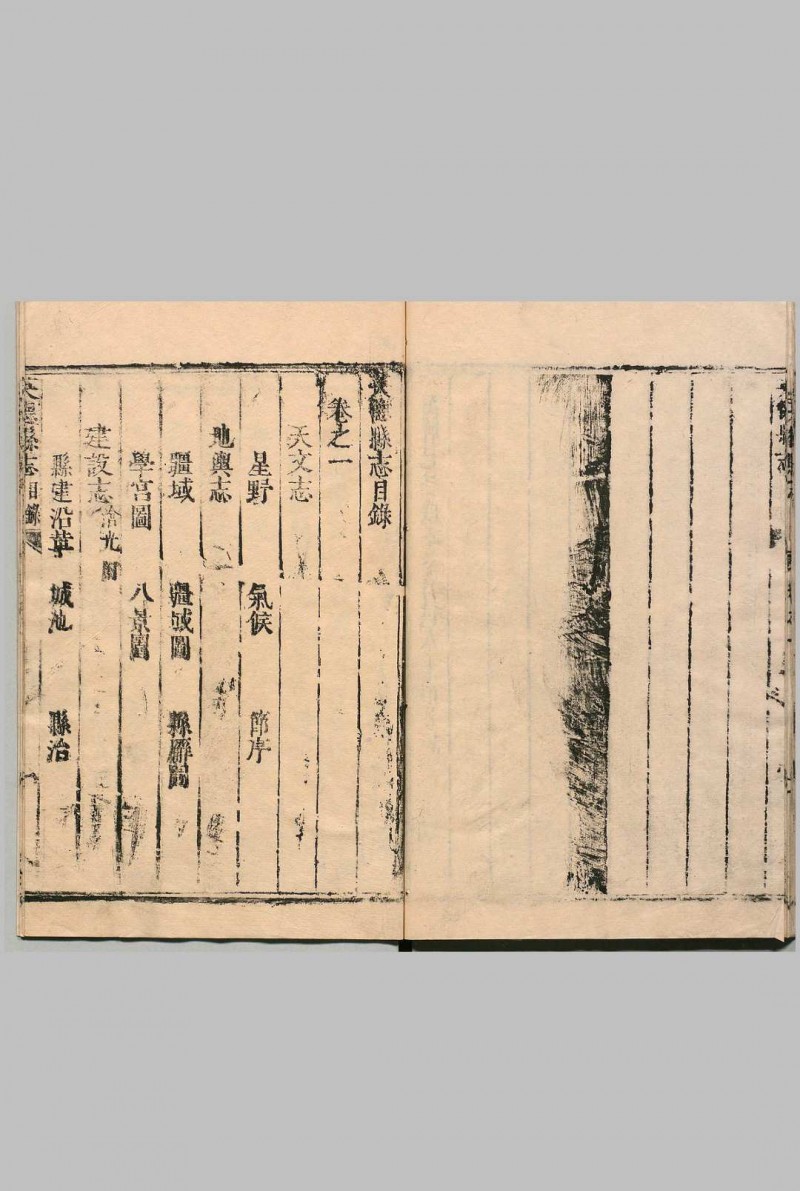 英德縣志目錄
卷之一
天文志
星野 氣候 節序
地輿志
疆域 疆域圖 縣廨圖
學宮圖 八景圖
建設志
縣建沿革 城池 縣治
英德縣志 目錄